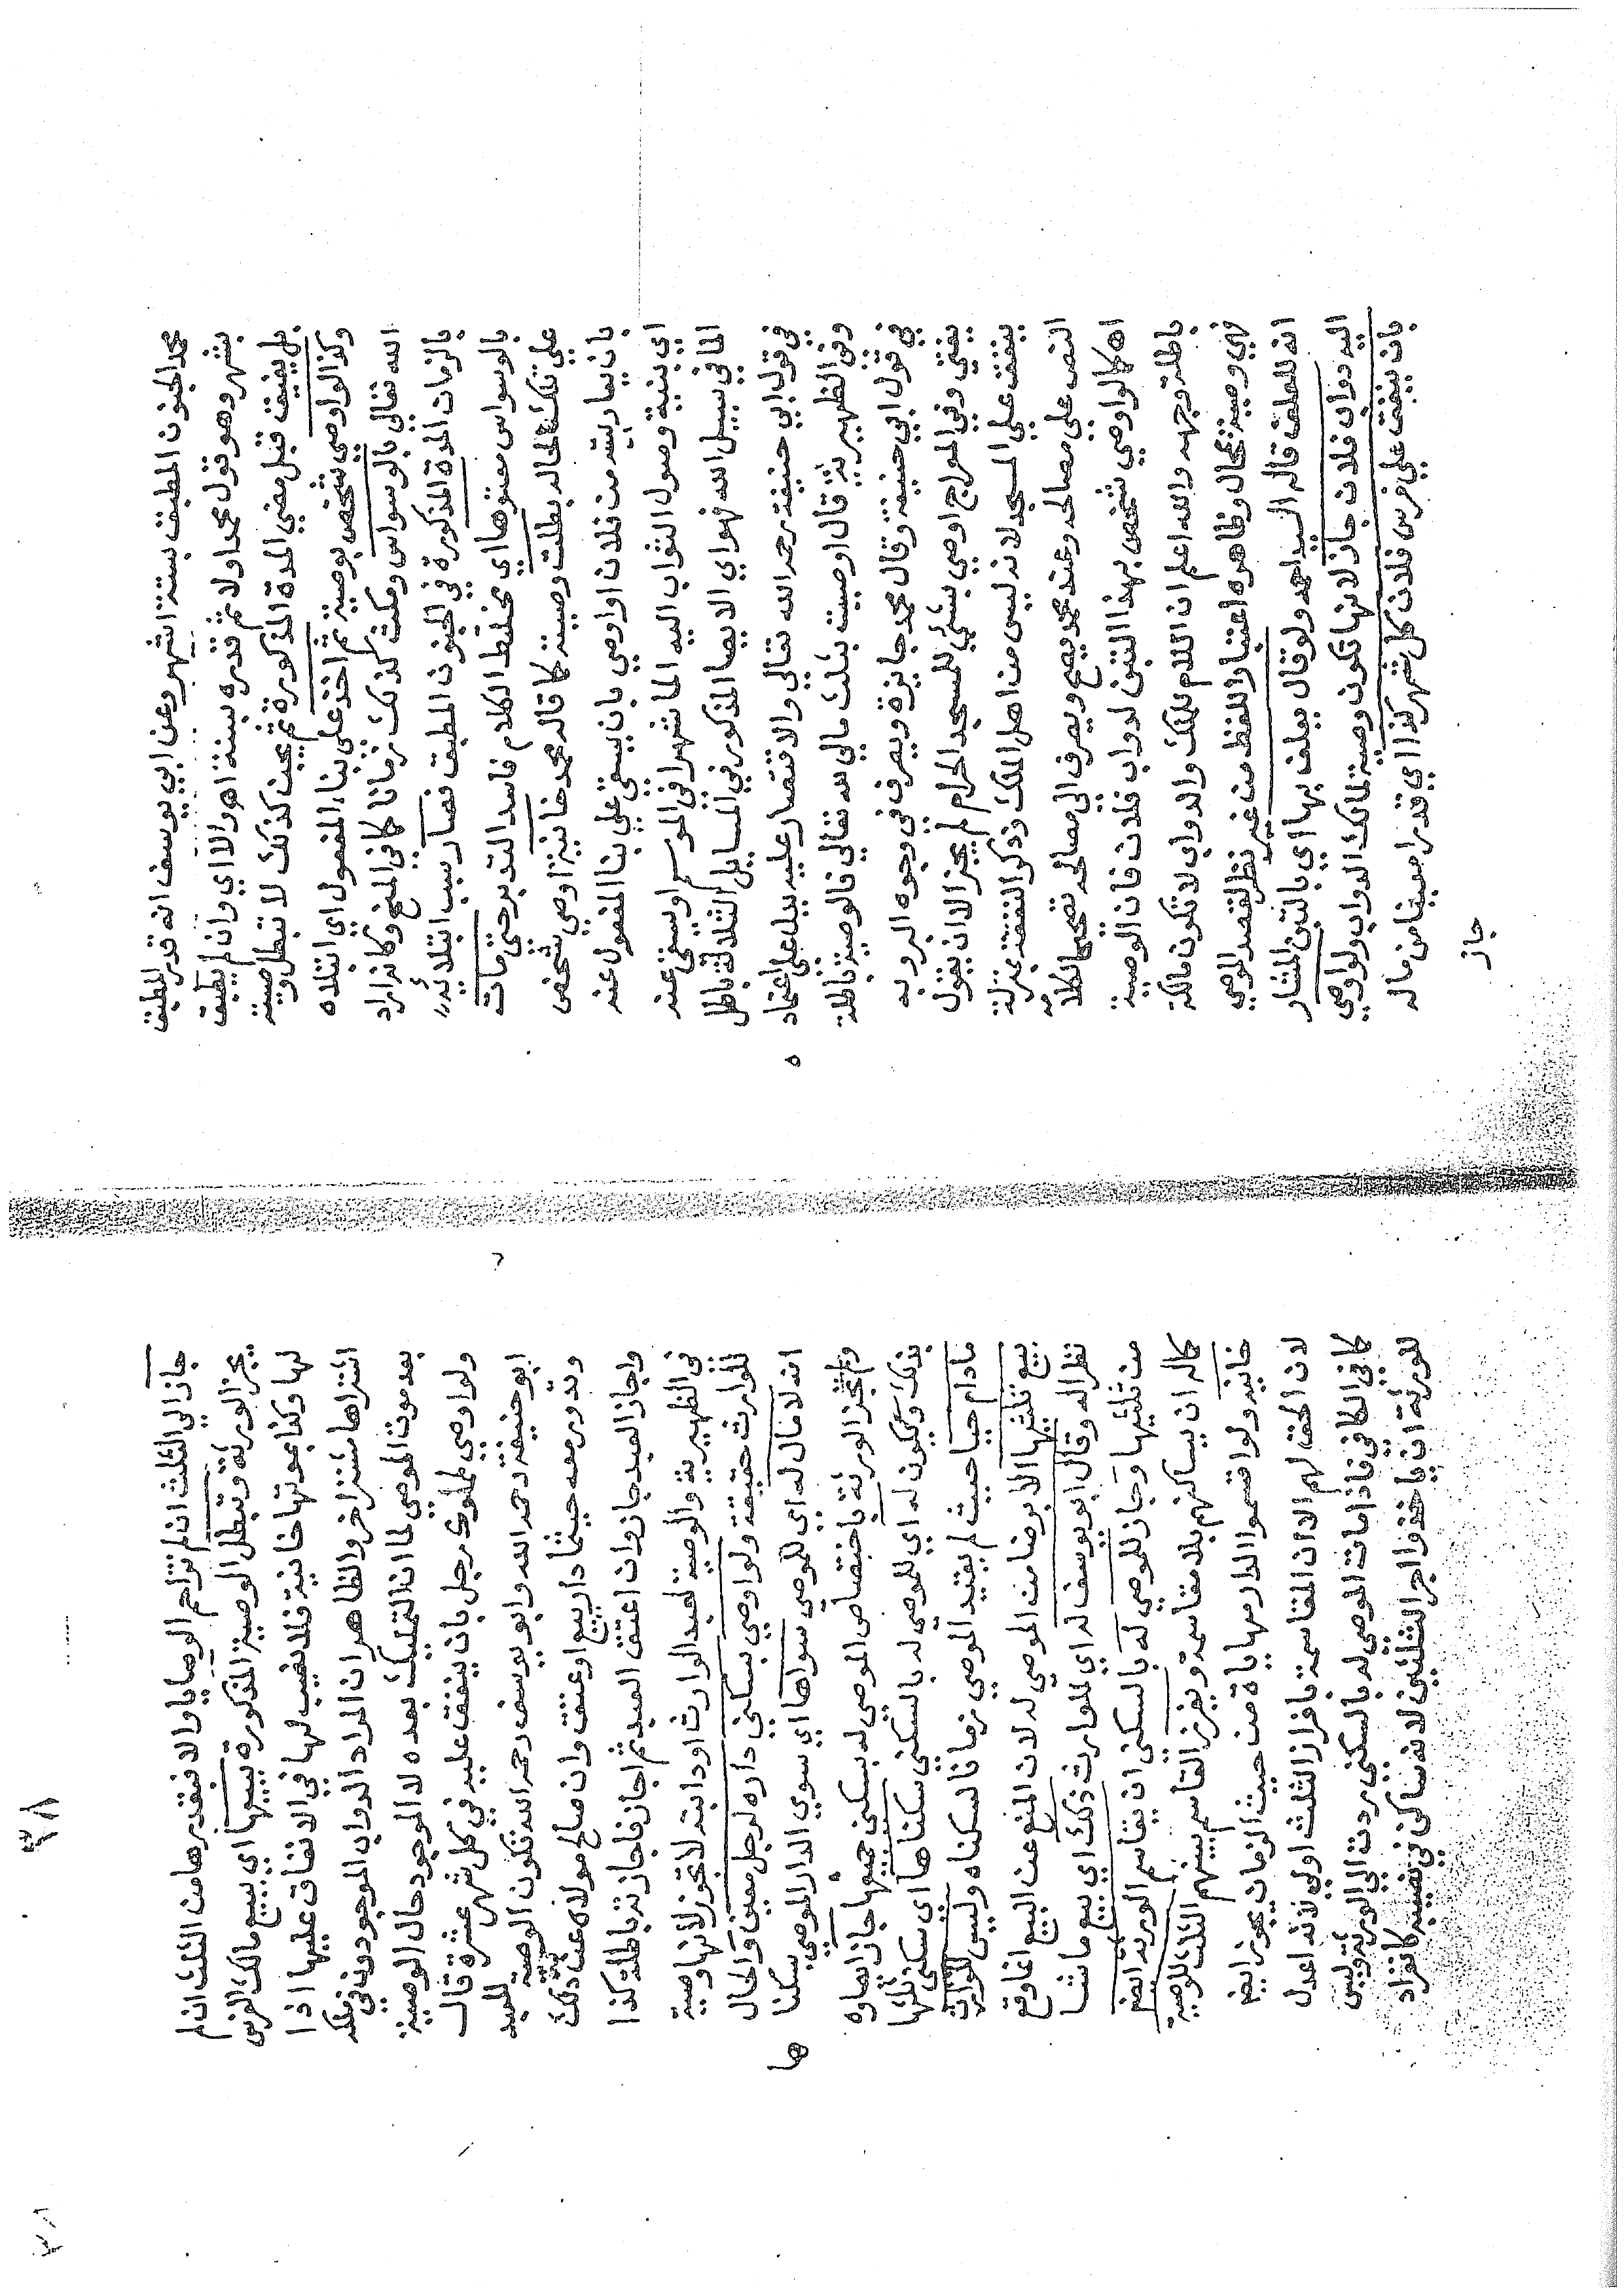 محمد الجنون المطبق بستة اشهر وعن ابي يوسف انه قدر المطبق
بشهر وهو قول محمد اولا ثم قدره بسنة اهـ والا اي وان لم يطبق
بل يفيق قبل مضي المدة المذكورة ثم يجن كذلك لا تبطل وصيته
وكذا لو اوصي شخص بوصية ثم اخذ علي بناء المفعول اي ابتلاه
الله تعالي بالوسواس ومكث كذلك زمانا كما في المنح وكانه اراد
بالزمان المدة المذكورة في الجنون المطبق فصار بسبب ابتلائه
بالوسواس معتوها اي مختلط الكلام فاسد التدبر حتي مات
علي تلك الحالة بطلت وصيته كما قاله محمد خانية اوصي شخص
بان يعار بيته من فلان او اوصي بان يسقي علي بنا المفعول عنه
اي بنية وصول الثواب اليه الما شهرا في الموسم او يسقي عنه
الما في سبيل الله فهو اي الايصا المذكور في المسايل الثلاثة باطل
في قول ابي حنيفة رحمه الله تعالي والاقتصار عليه يدل علي اعتماده
وفي الظهيرية قال اوصيت بثلث مالي لله تعالي فالوصية باطلة
في قول ابي حنيفة وقال محمد جايزة ويصرف في وجوه البر وبه
يفتي وفي المعراج اوصي بشئ للمسجد الحرام لم يجز الا ان يقول
ينفق علي المسجد لانه ليس من اهل الملك وذكر النفقة بمنزلة
النص علي مصالحه وعند محمد يصح ويصرف الي مصالحه تصحيحا للكلام
اهـ كما لو اوصي شخص بهذا التبن لدواب فلان فان الوصية
باطلة وجهه والله اعلم ان اللام للملك والدواب لا تكون مالكة
فهي وصية بمحال وظاهره اعتبار اللفظ من غير نظر لقصد الموصي
انه للعلف قاله السيد احمد ولو قال يعلف بها اي بالتبن المشار
اليه دواب فلان جاز لانها تكون وصية لمالك الدواب ولو اوصي
بان ينفق علي فرس فلان كل شهر كذا اي قدرا معينا من ماله
جاز
جاز الي الثلث ان لم تزاحم الوصايا والا فبقدرها من الثلث ان لم
يجز الورثة وتبطل الوصية المذكورة ببيعها اي ببيع مالك الفرس
لها وكذا بموتها خانية فلا نصيب لها في الانفاق عليها اذا
اشتراها مشتر اخر والظاهر ان المراد الدواب الموجودة في ملكه
بعد موت الموصي لما ان التمليك بعده لا الموجود حال الوصية
ولو اوصي لمملوك رجل بان ينفق عليه في كل شهر عشرة قال
ابو حنيفة رحمه الله وابو يوسف رحمه الله تكون الوصية للعبد
وتدور معه حيثما دار ببيع او عتق وان صالح مولاه عن ذلك
واجاز العبد جاز وان اعتق العبد ثم اجاز فاجازته باطلة كذا
في الظهيرية والوصية لعبد الوارث او دابته لا تجوز لانها وصية
للوارث حقيقة ولو اوصي بسكني داره لرجل معين والحال
انه لا مال له اي للموصي سواها اي سوي الدار الموصي بسكناها
ولم تجز الورثة باختصاص الموصي له بسكني جميعها جاز ايصاوه
بذلك ويكون له اي للموصي له بالسكني سكناها اي سكني ثلثها
مادام حيا حيث لم يقيد الموصي زمانا لسكناه وليس للوارث
بيع ثلثيها الا برضا من الموصي له لان المنع عن البيع انما وقع
نظرا له وقال ابو يوسف له اي للوارث ذلك اي بيع ما شا
من ثلثيها وجاز للموصي له بالسكني ان يقاسم الورثة ايضا
كاله ان يساكنهم بلا مقاسمة ويفرز القاسم بينهم الثلث للوصية
خانية ولو اقتسموا الدار مهاياة من حيث الزمان يجوز ايضا
لان الحق لهم الا ان المقاسمة بافراز الثلث اولي لانه اعدل
كما في الكافي فاذا مات الموصي له بالسكني ردت الي الورثة وليس
للورثة ان ياخذوا اجر الثلثين لانه ساكن في نصيبه كانفراد